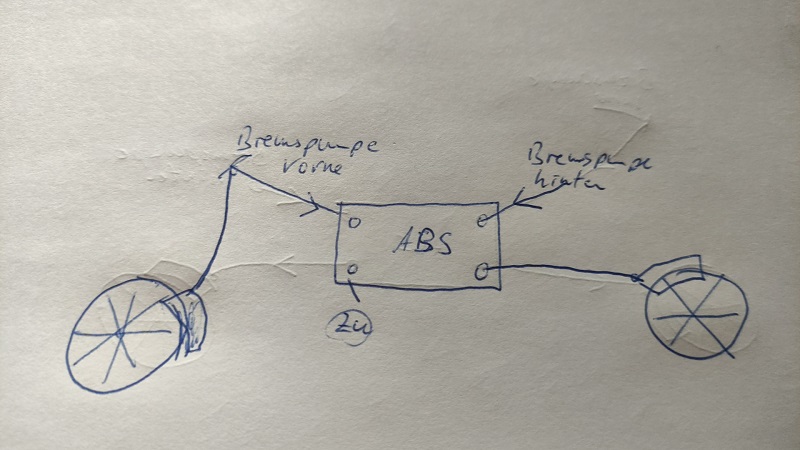 Bremspumpe
vorne
Bremspumpe
hinten
ABS
Zu